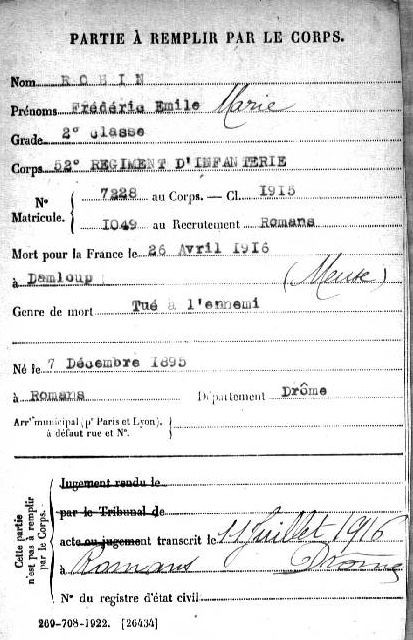 PARTIE À REMPLIR PAR LE CORPS.
Nom ROBIN
Prénoms Frédéric Emile Marie
Grade 2° classe
Corps 52° REGIMENT D'INFANTERIE
N° Matricule. { 7228 au Corps. — Cl. 1915
1049 au Recrutement Romans
Mort pour la France le 26 Avril 1916
à Damloup (Meuse)
Genre de mort Tué à l'ennemi
Né le 7 Décembre 1895
à Romans Département Drôme
Arrt municipal (pr Paris et Lyon),
à défaut rue et N°.
Cette partie n'est pas à remplir par le Corps.
Jugement rendu le
par le Tribunal de
acte ou jugement transcrit le 11 Juillet 1916
à Romans Drôme
N° du registre d'état civil
269-708-1922. [26434]